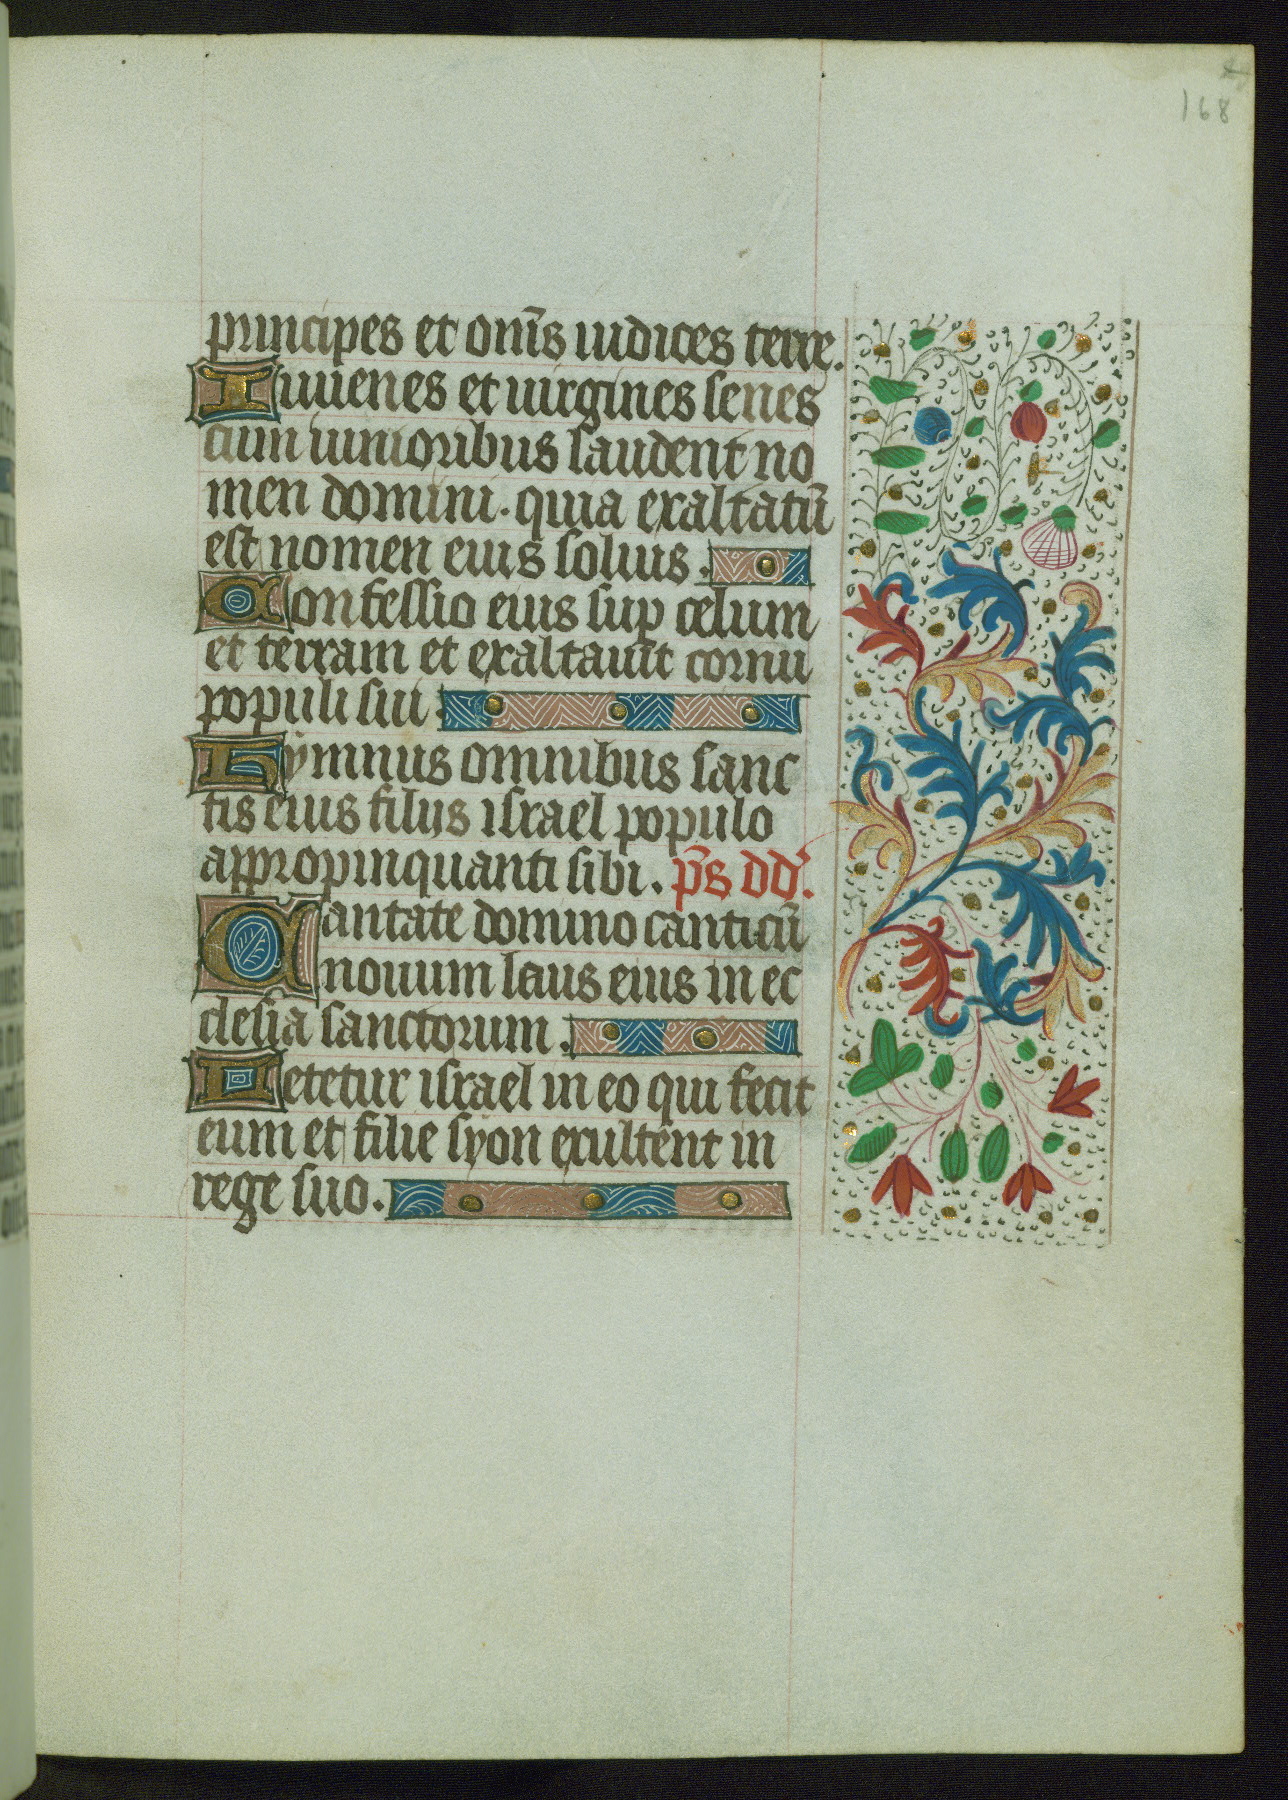 168
principes et om̄s iudices terre.
Iuuenes et uirgines senes
cum iunioribus laudent no
men domini. quia exaltatū
est nomen eius solius.
Confessio eius sup celum
et terram et exaltauit cornu
populi sui.
Hymnus omnibus sanc
tis eius filijs israel populo
appropinquanti sibi. p̄s dd.
Cantate domino canticū
nouum laus eius in ec
clesia sanctorum.
Letetur israel in eo qui fecit
eum et filie syon exultent in
rege suo.